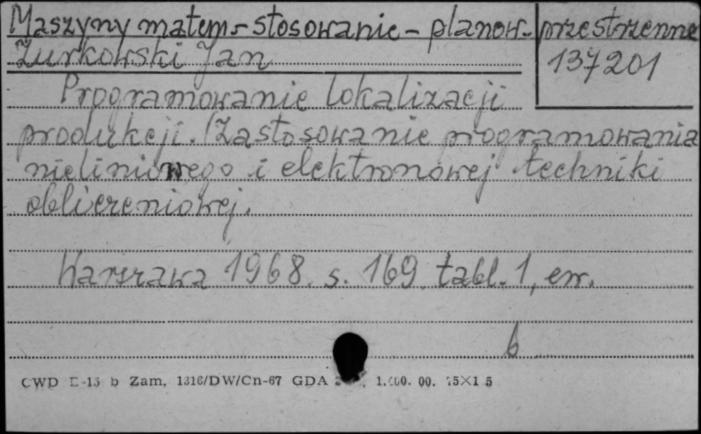 Maszyny matem. - stosowanie - planow. przestrzenne
Żurkowski Jan
137201
Programowanie lokalizacji
produkcji. /Zastosowanie programowania
nieliniowego i elektronowej techniki
obliczeniowej.
Warszawa 1968. s. 169. tabl. 1, err.
b
CWD E-15 b Zam. 1316/DW/Cn-67 GDA 1.000.00.